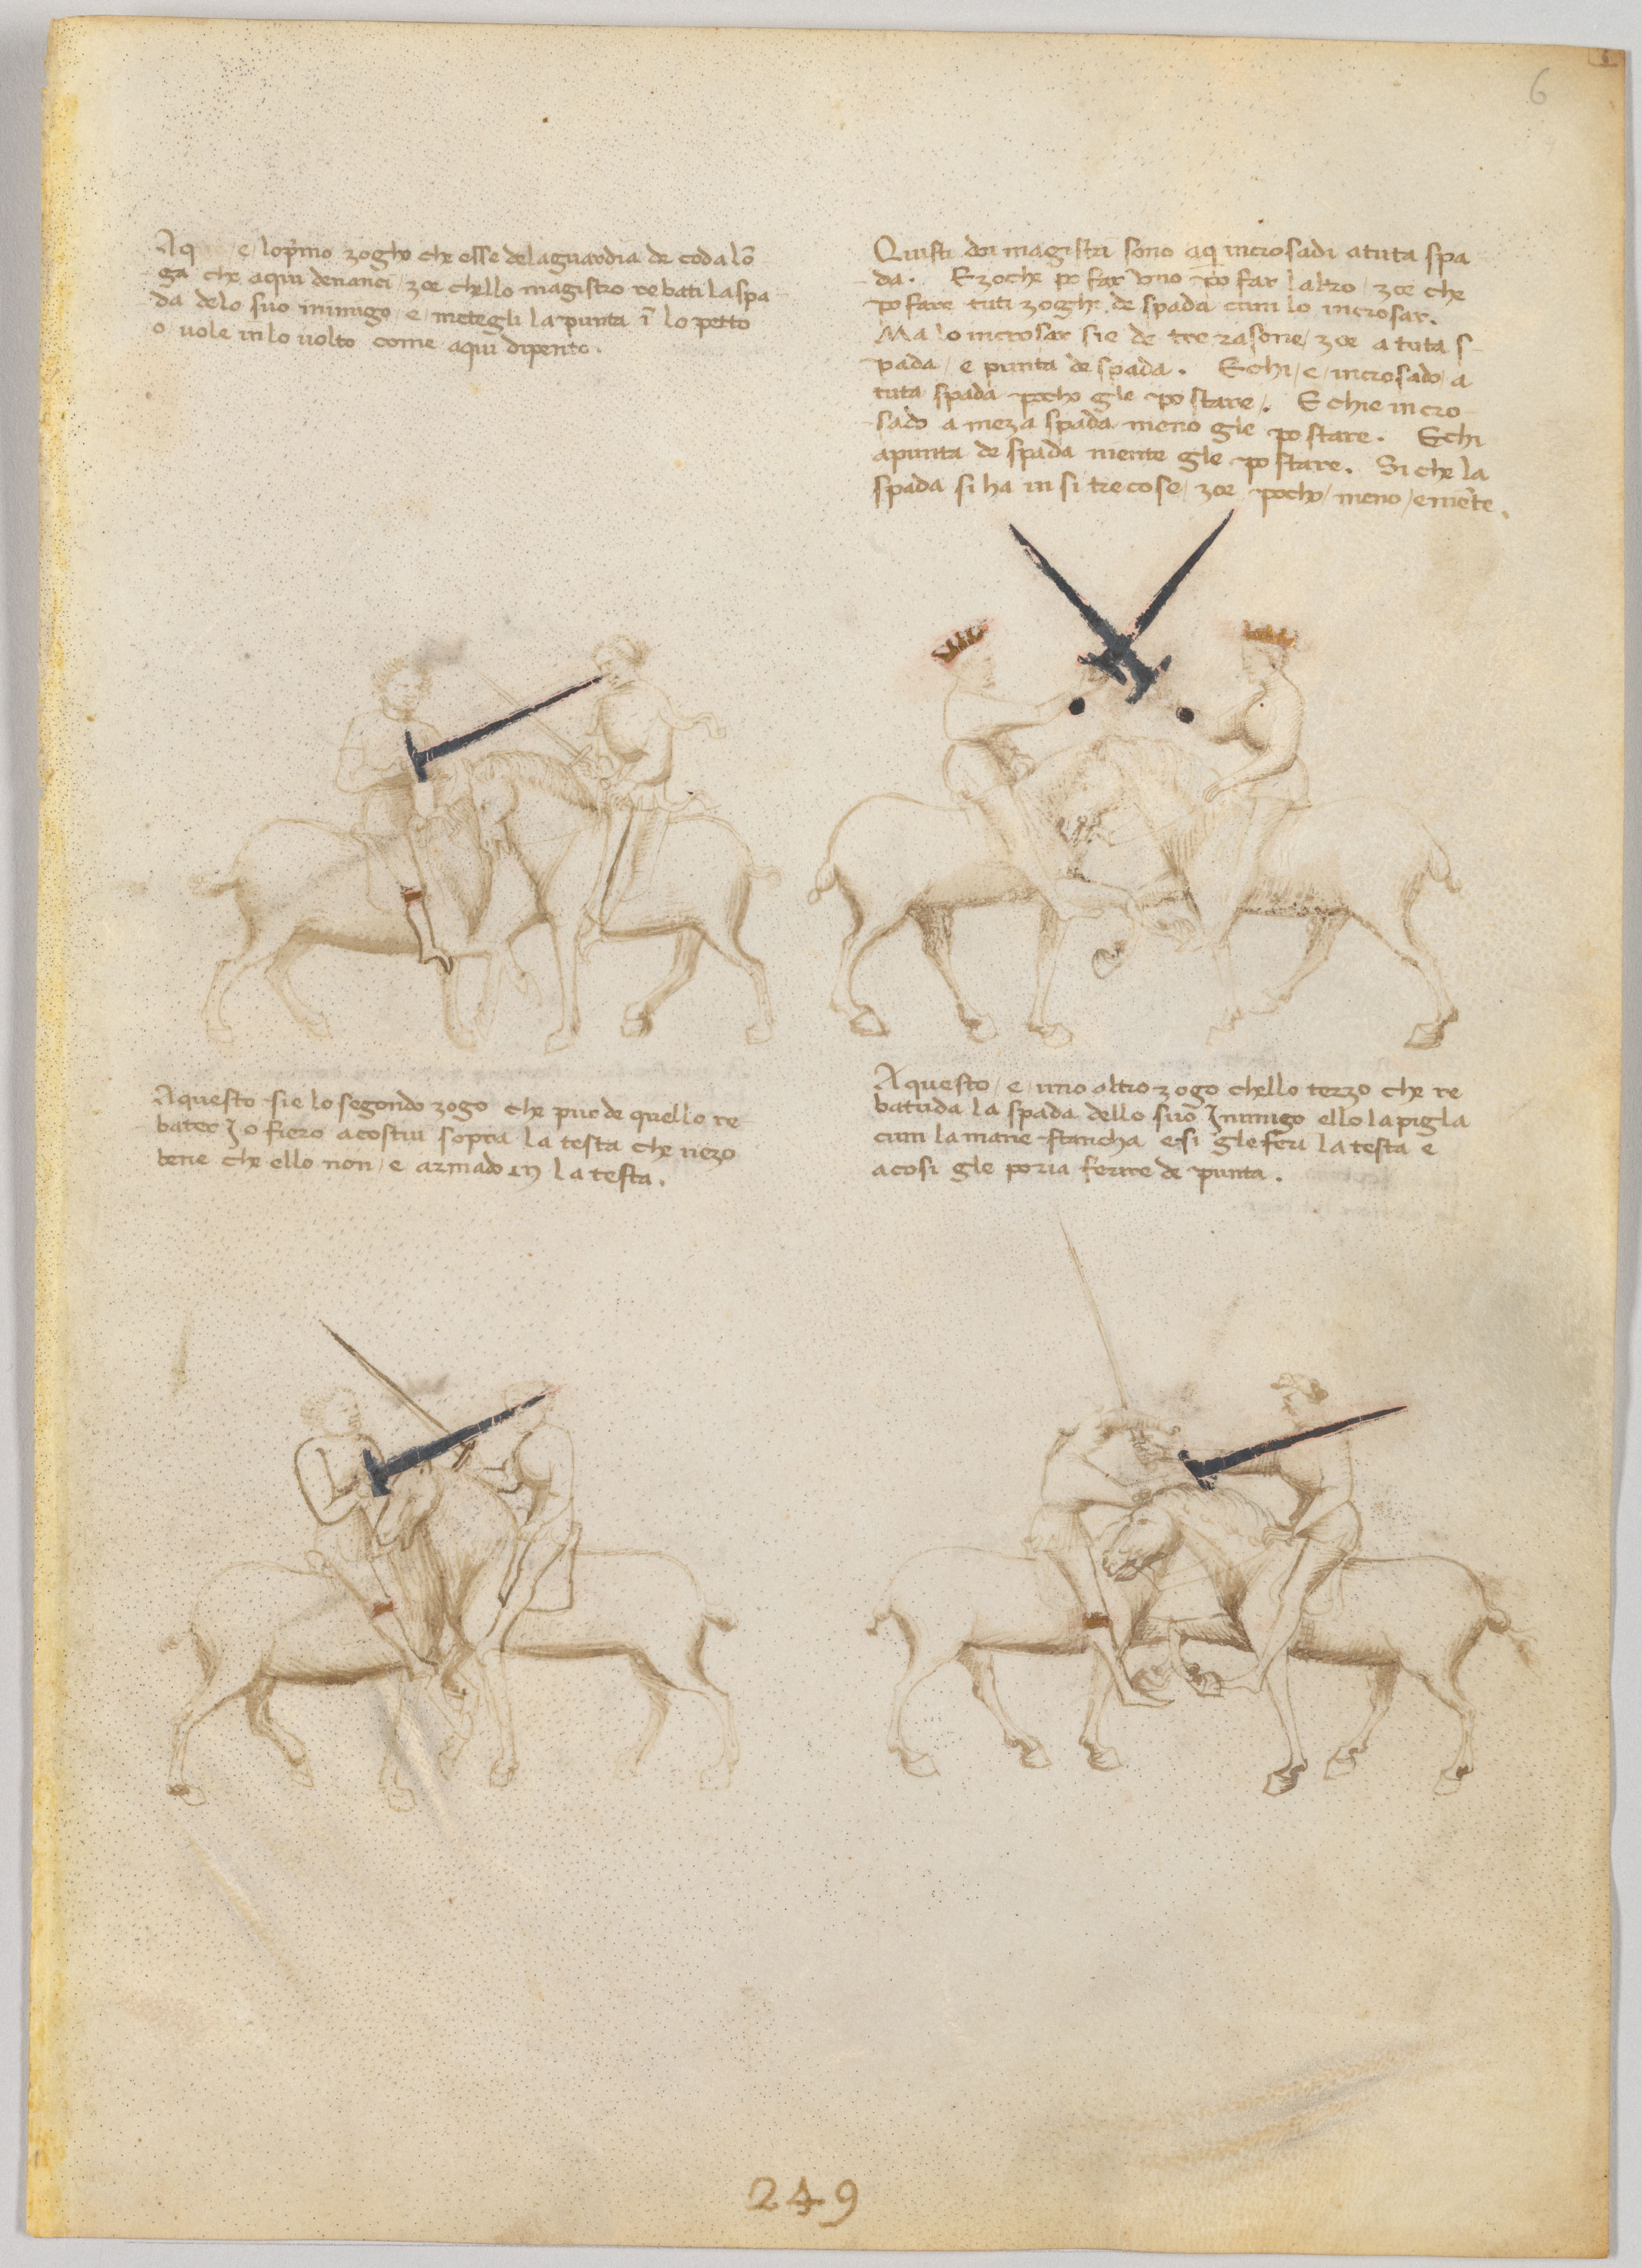 6
Aq e lop̄mo zogho che esse delaguardia de coda lō
ga che aquı denanci / zoe chello magistro rebati la spa
da delo suo inimigo / e / metegli la punta ī lo petto
o uole in lo uolto come aqui dipento.
Quisti doi magistri sono aq̄ incrosadi a tuta spa
da. E zoche po far vno po far laltro / zoe che
po fare tuti zoghi de spada cum lo incrosar.
Ma lo incrosar sie de tre rasone / zoe a tuta s
pada / e punta de spada. E chi / e / incrosado a
tuta spada pocho gle po stare /. E chie incro
sado a meza spada meno gle po stare. E chi
a punta de spada niente gle po stare. Si che la
spada si ha in si tre cose / zoe pocho / meno / e niēte.
Aquesto sie lo segondo zogo che pur de quello re
bater Io fiero a costui sopra la testa che uezo
bene che ello non / e armado in la testa.
Aquesto / e / uno altro zogo chello terzo che re
batuda la spada dello suo Inimigo ello la pigla
cum la mane stancha e si gle feri la testa e
a cosi gle poria ferire de punta.
249